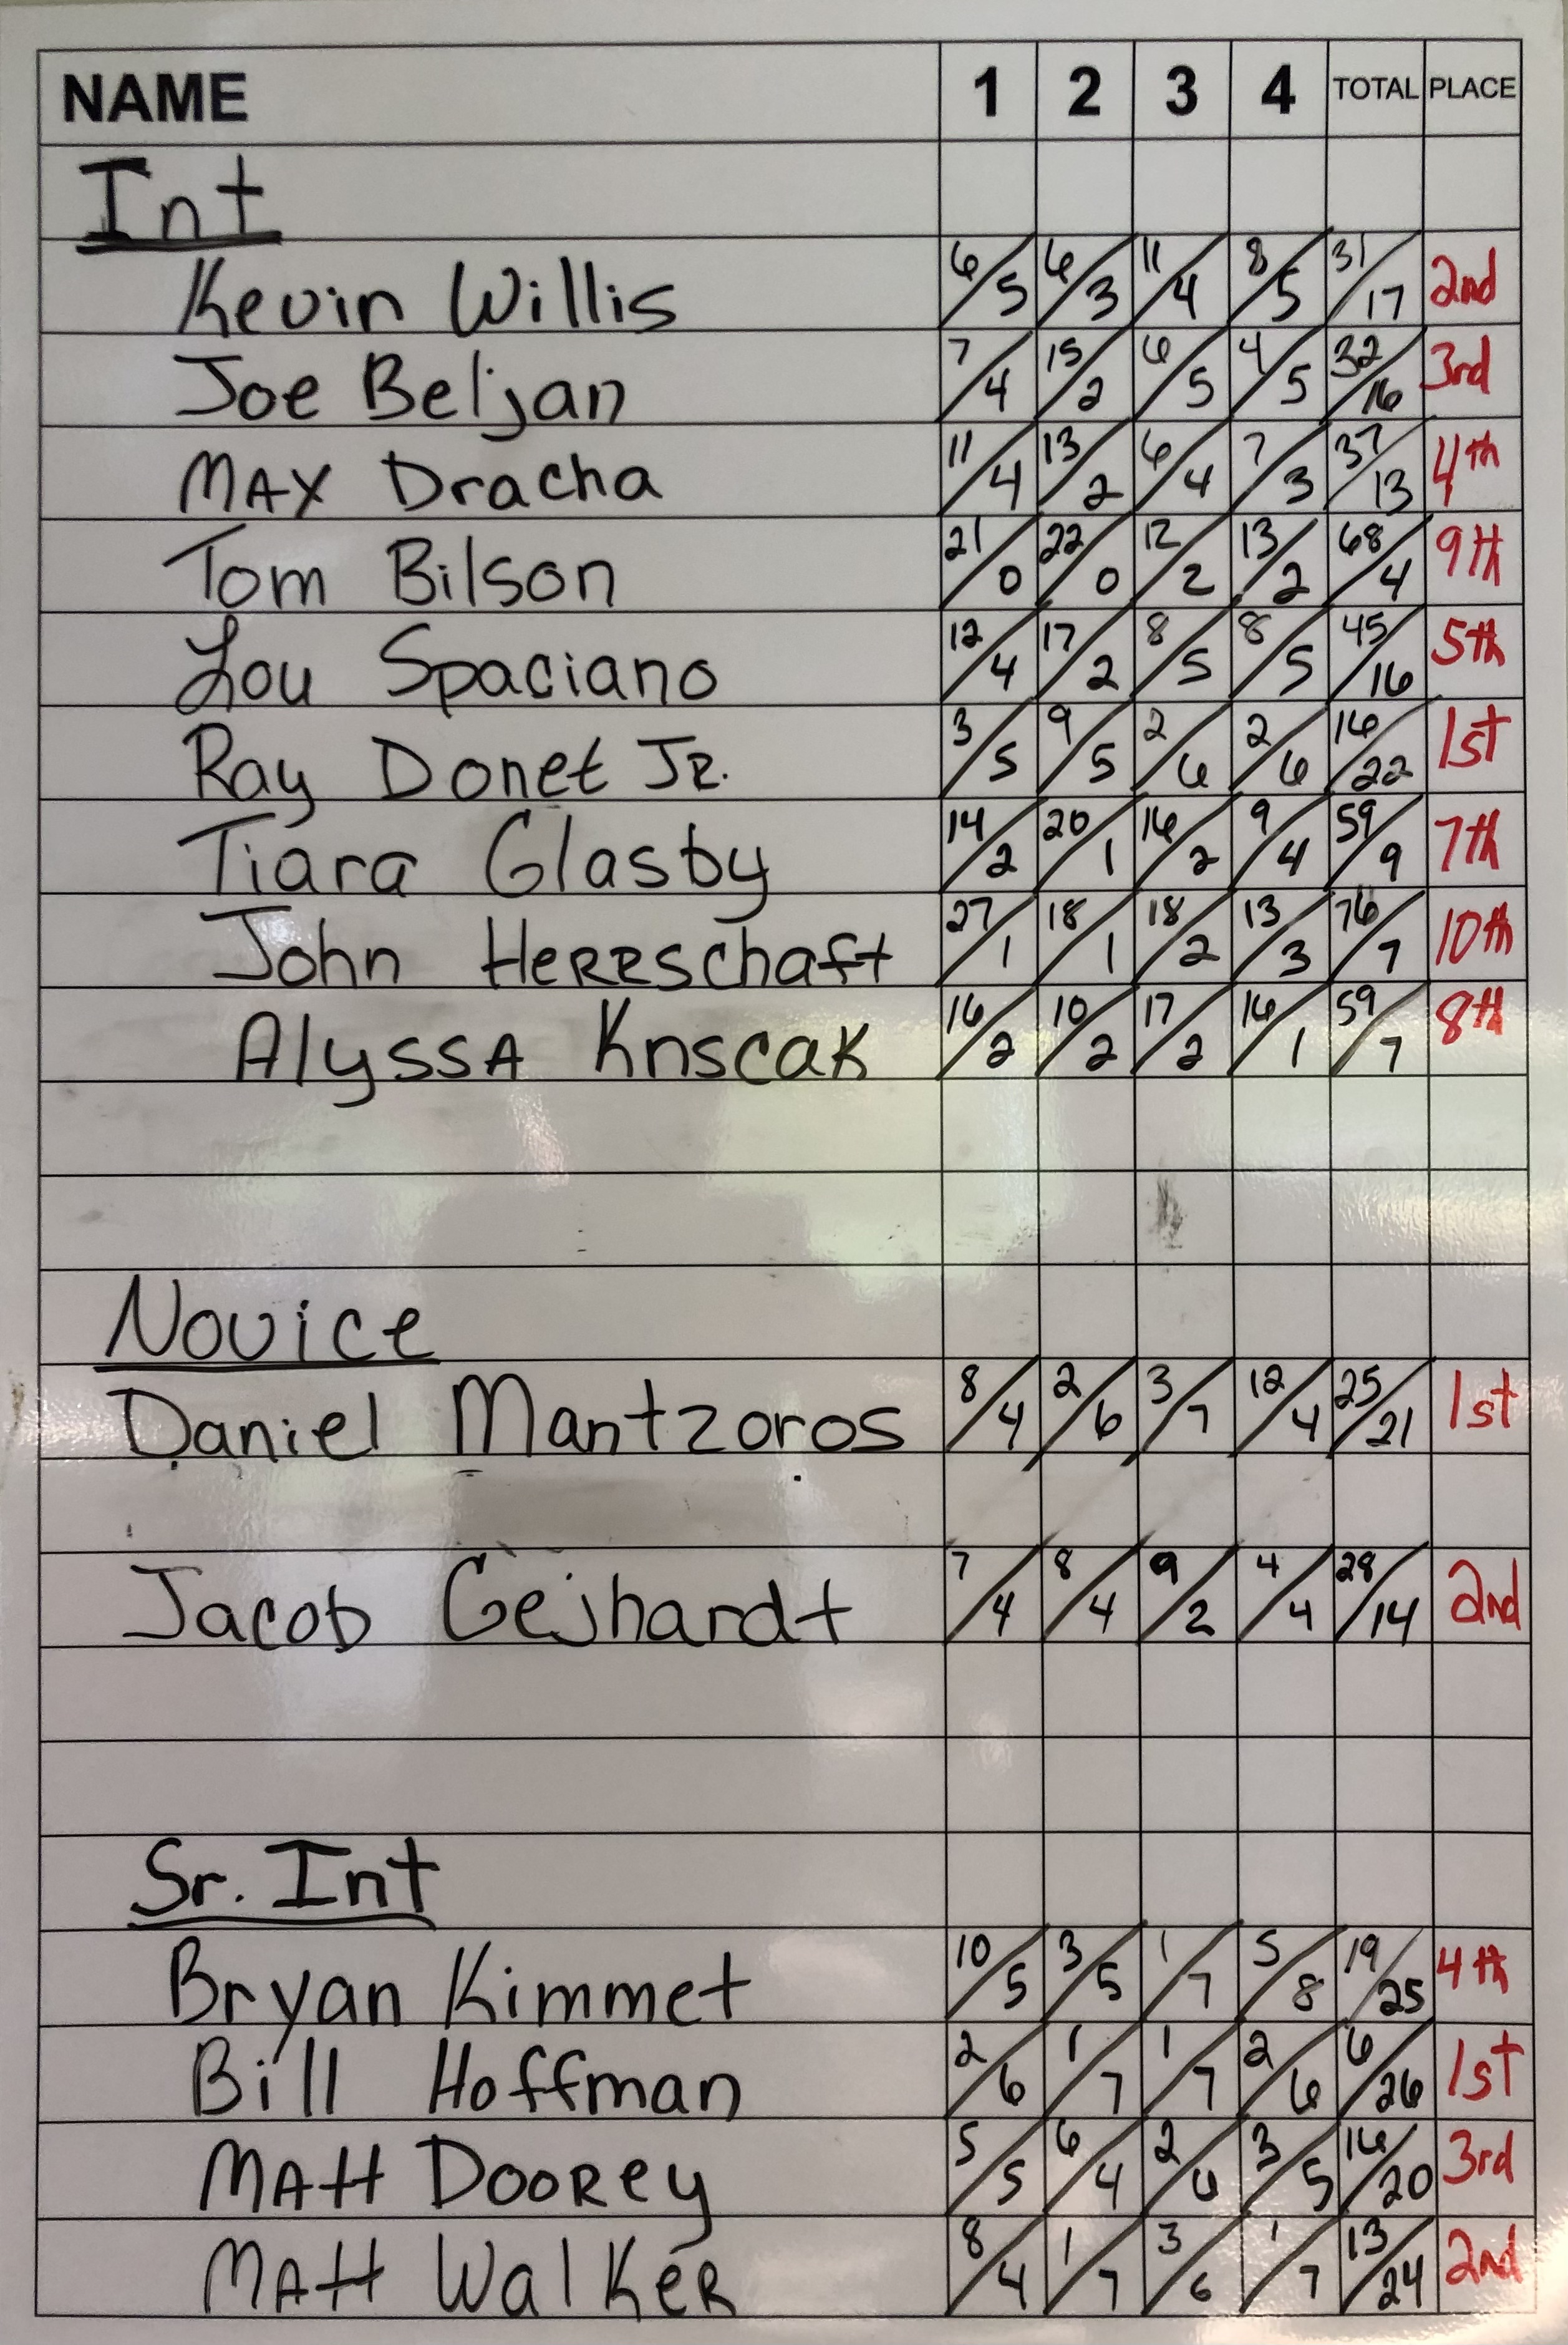 NAME 1 2 3 4 TOTAL PLACE
Int
Kevin Willis 6/5 6/3 11/4 8/5 31/17 2nd
Joe Beljan 7/4 15/2 6/5 4/5 32/16 3rd
MAX Dracha 11/4 13/2 6/4 7/3 37/13 4th
Tom Bilson 21/0 22/0 12/2 13/2 68/4 9th
Lou Spaciano 12/4 17/2 8/5 8/5 45/16 5th
Ray Donet JR. 3/5 9/5 2/6 2/6 16/22 1st
Tiara Glasby 14/2 20/1 16/2 9/4 59/9 7th
John HeRRSchaft 27/1 18/1 18/2 13/3 76/7 10th
AlySSA Knscak 16/2 10/2 17/2 16/1 59/7 8th
Novice
Daniel Mantzoros 8/4 2/6 3/7 12/4 25/21 1st
Jacob Gejhardt 7/4 8/4 9/2 4/4 28/14 2nd
Sr. Int
Bryan Kimmet 10/5 3/5 1/7 5/8 19/25 4th
Bill Hoffman 2/6 1/7 1/7 2/6 6/26 1st
MAtt DOORey 5/5 6/4 2/6 3/5 16/20 3rd
MAtt WalkeR 8/4 1/7 3/6 1/7 13/24 2nd